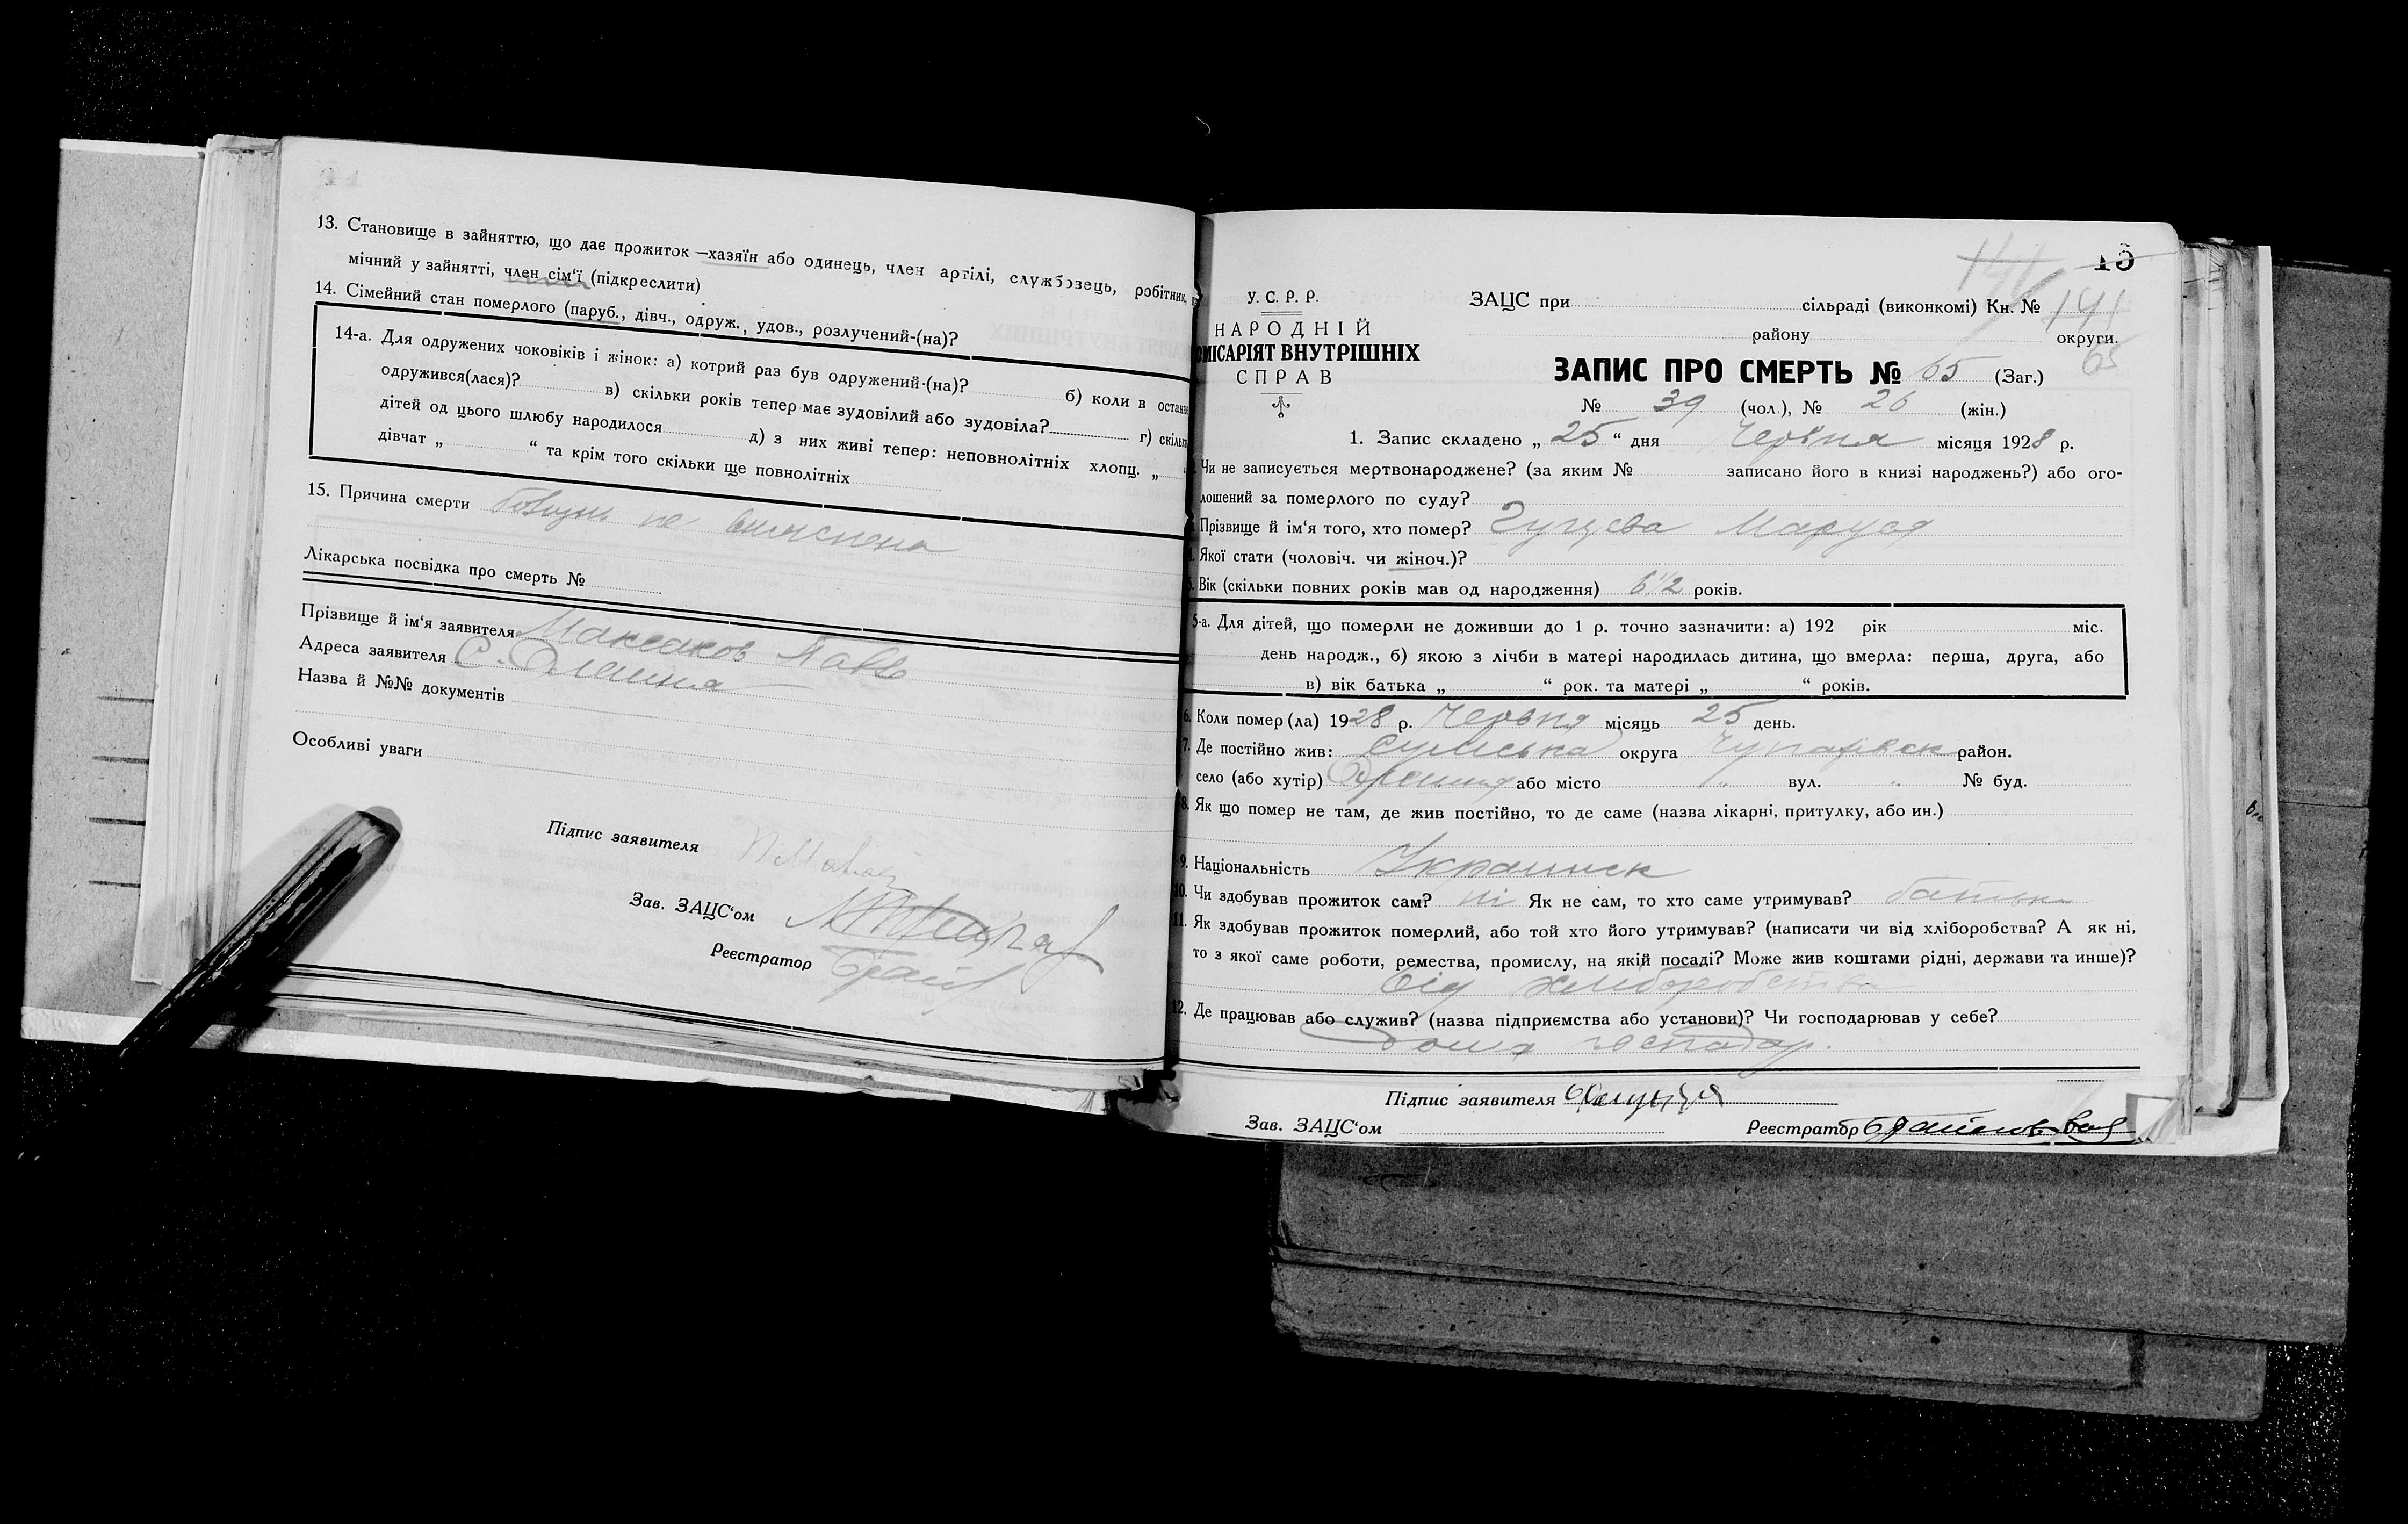 13. Становище в зайняттю, що дає прожиток —хазяїн або одинець, член артілі, службовець, робітник,
мічний у зайнятті, член сім'ї (підкреслити)
14. Сімейний стан померлого (паруб., дівч., одруж., удов., розлучений-(на)?
14-а. Для одружених чоковіків і жінок: а) котрий раз був одружений-(на)? б) коли в остан
одружився(лася)? в) скільки років тепер має зудовілий або зудовіла? г) скільк
дітей од цього шлюбу народилося д) з них живі тепер: неповнолітніх хлопц. „
дівчат „ “ та крім того скільки ще повнолітніх
15. Причина смерти не
Лікарська посвідка про смерть №
Прізвище й ім'я заявителя Максаков Павло
Адреса заявителя С. Олешня
Назва й №№ документів
Особливі уваги
Підпис заявителя
Зав. ЗАЦС'ом
Реєстратор
16
141
У. С. Р. Р.
НАРОДНІЙ
ОМІСАРІЯТ ВНУТРІШНІХ
СПРАВ
ЗАЦС при сільраді (виконкомі) Кн. № 141
району округи.
65
ЗАПИС ПРО СМЕРТЬ № 65 (Заг.)
№ 39 (чол.), № 26 (жін.)
1. Запис складено „25“ дня Червня місяця 1928 р.
Чи не записується мертвонароджене? (за яким № записано його в книзі народжень?) або ого-
лошений за померлого по суду?
Прізвище й ім'я того, хто помер? Маруся
Якої стати (чоловіч. чи жіноч.)?
5. Вік (скільки повних років мав од народження) 6 1/2 років.
5-а. Для дітей, що померли не доживши до 1 р. точно зазначити: а) 192 рік міс.
день народж., б) якою з лічби в матері народилась дитина, що вмерла: перша, друга, або
в) вік батька „ “ рок. та матері „ “ років.
6. Коли помер(ла) 1928 р. Червня місяць 25 день.
7. Де постійно жив: Сумська округа район.
село (або хутір) Олешня або місто „ вул. „ № буд.
8. Як що помер не там, де жив постійно, то де саме (назва лікарні, притулку, або ин.)
9. Національність Украинск
10. Чи здобував прожиток сам? ні Як не сам, то хто саме утримував? батько
11. Як здобував прожиток померлий, або той хто його утримував? (написати чи від хліборобства? А як ні,
то з якої саме роботи, ремества, промислу, на якій посаді? Може жив коштами рідні, держави та инше)?
від хліборобства
12. Де працював або служив? (назва підприємства або установи)? Чи господарював у себе?
дома господар.
Підпис заявителя
Зав. ЗАЦС'ом Реєстратор